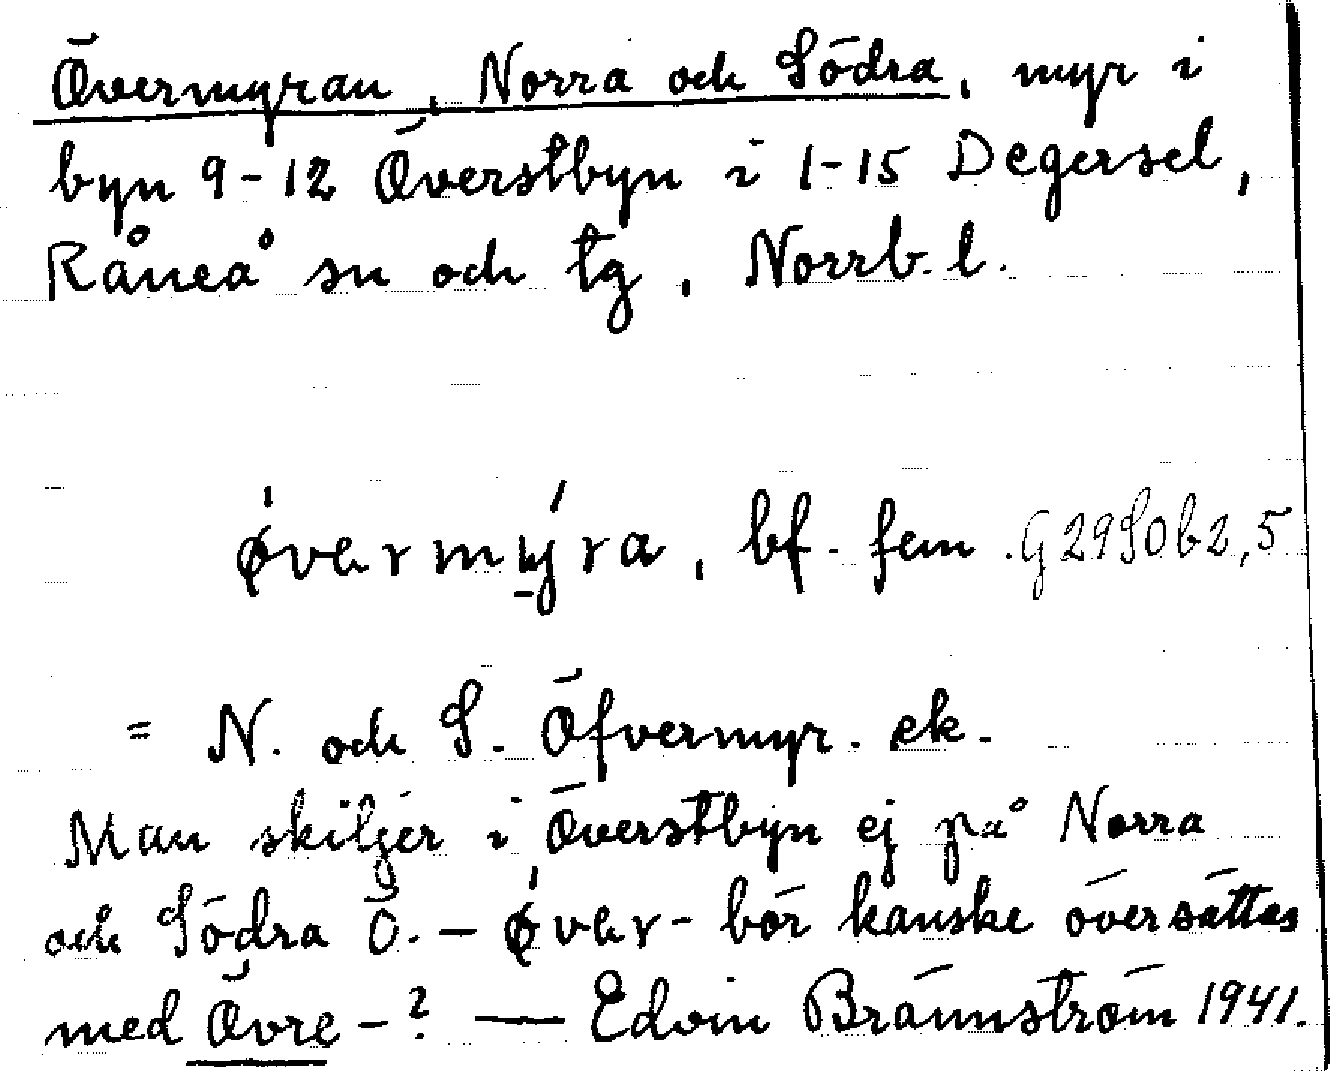 Övermyran, Norra och Södra, myr i
byn 9-12 Överstbyn i 1-15 Degersel,
Råneå sn och tg, Norrb. l.
øvermyra, bf. fem. G29S0b2,5
= N. och S. Öfvermyr. ek.
Man skiljer i Överstbyn ej på Norra
och Södra Ö. – øver- bör kanske översättas
med Övre-? — Edvin Brännström 1941.